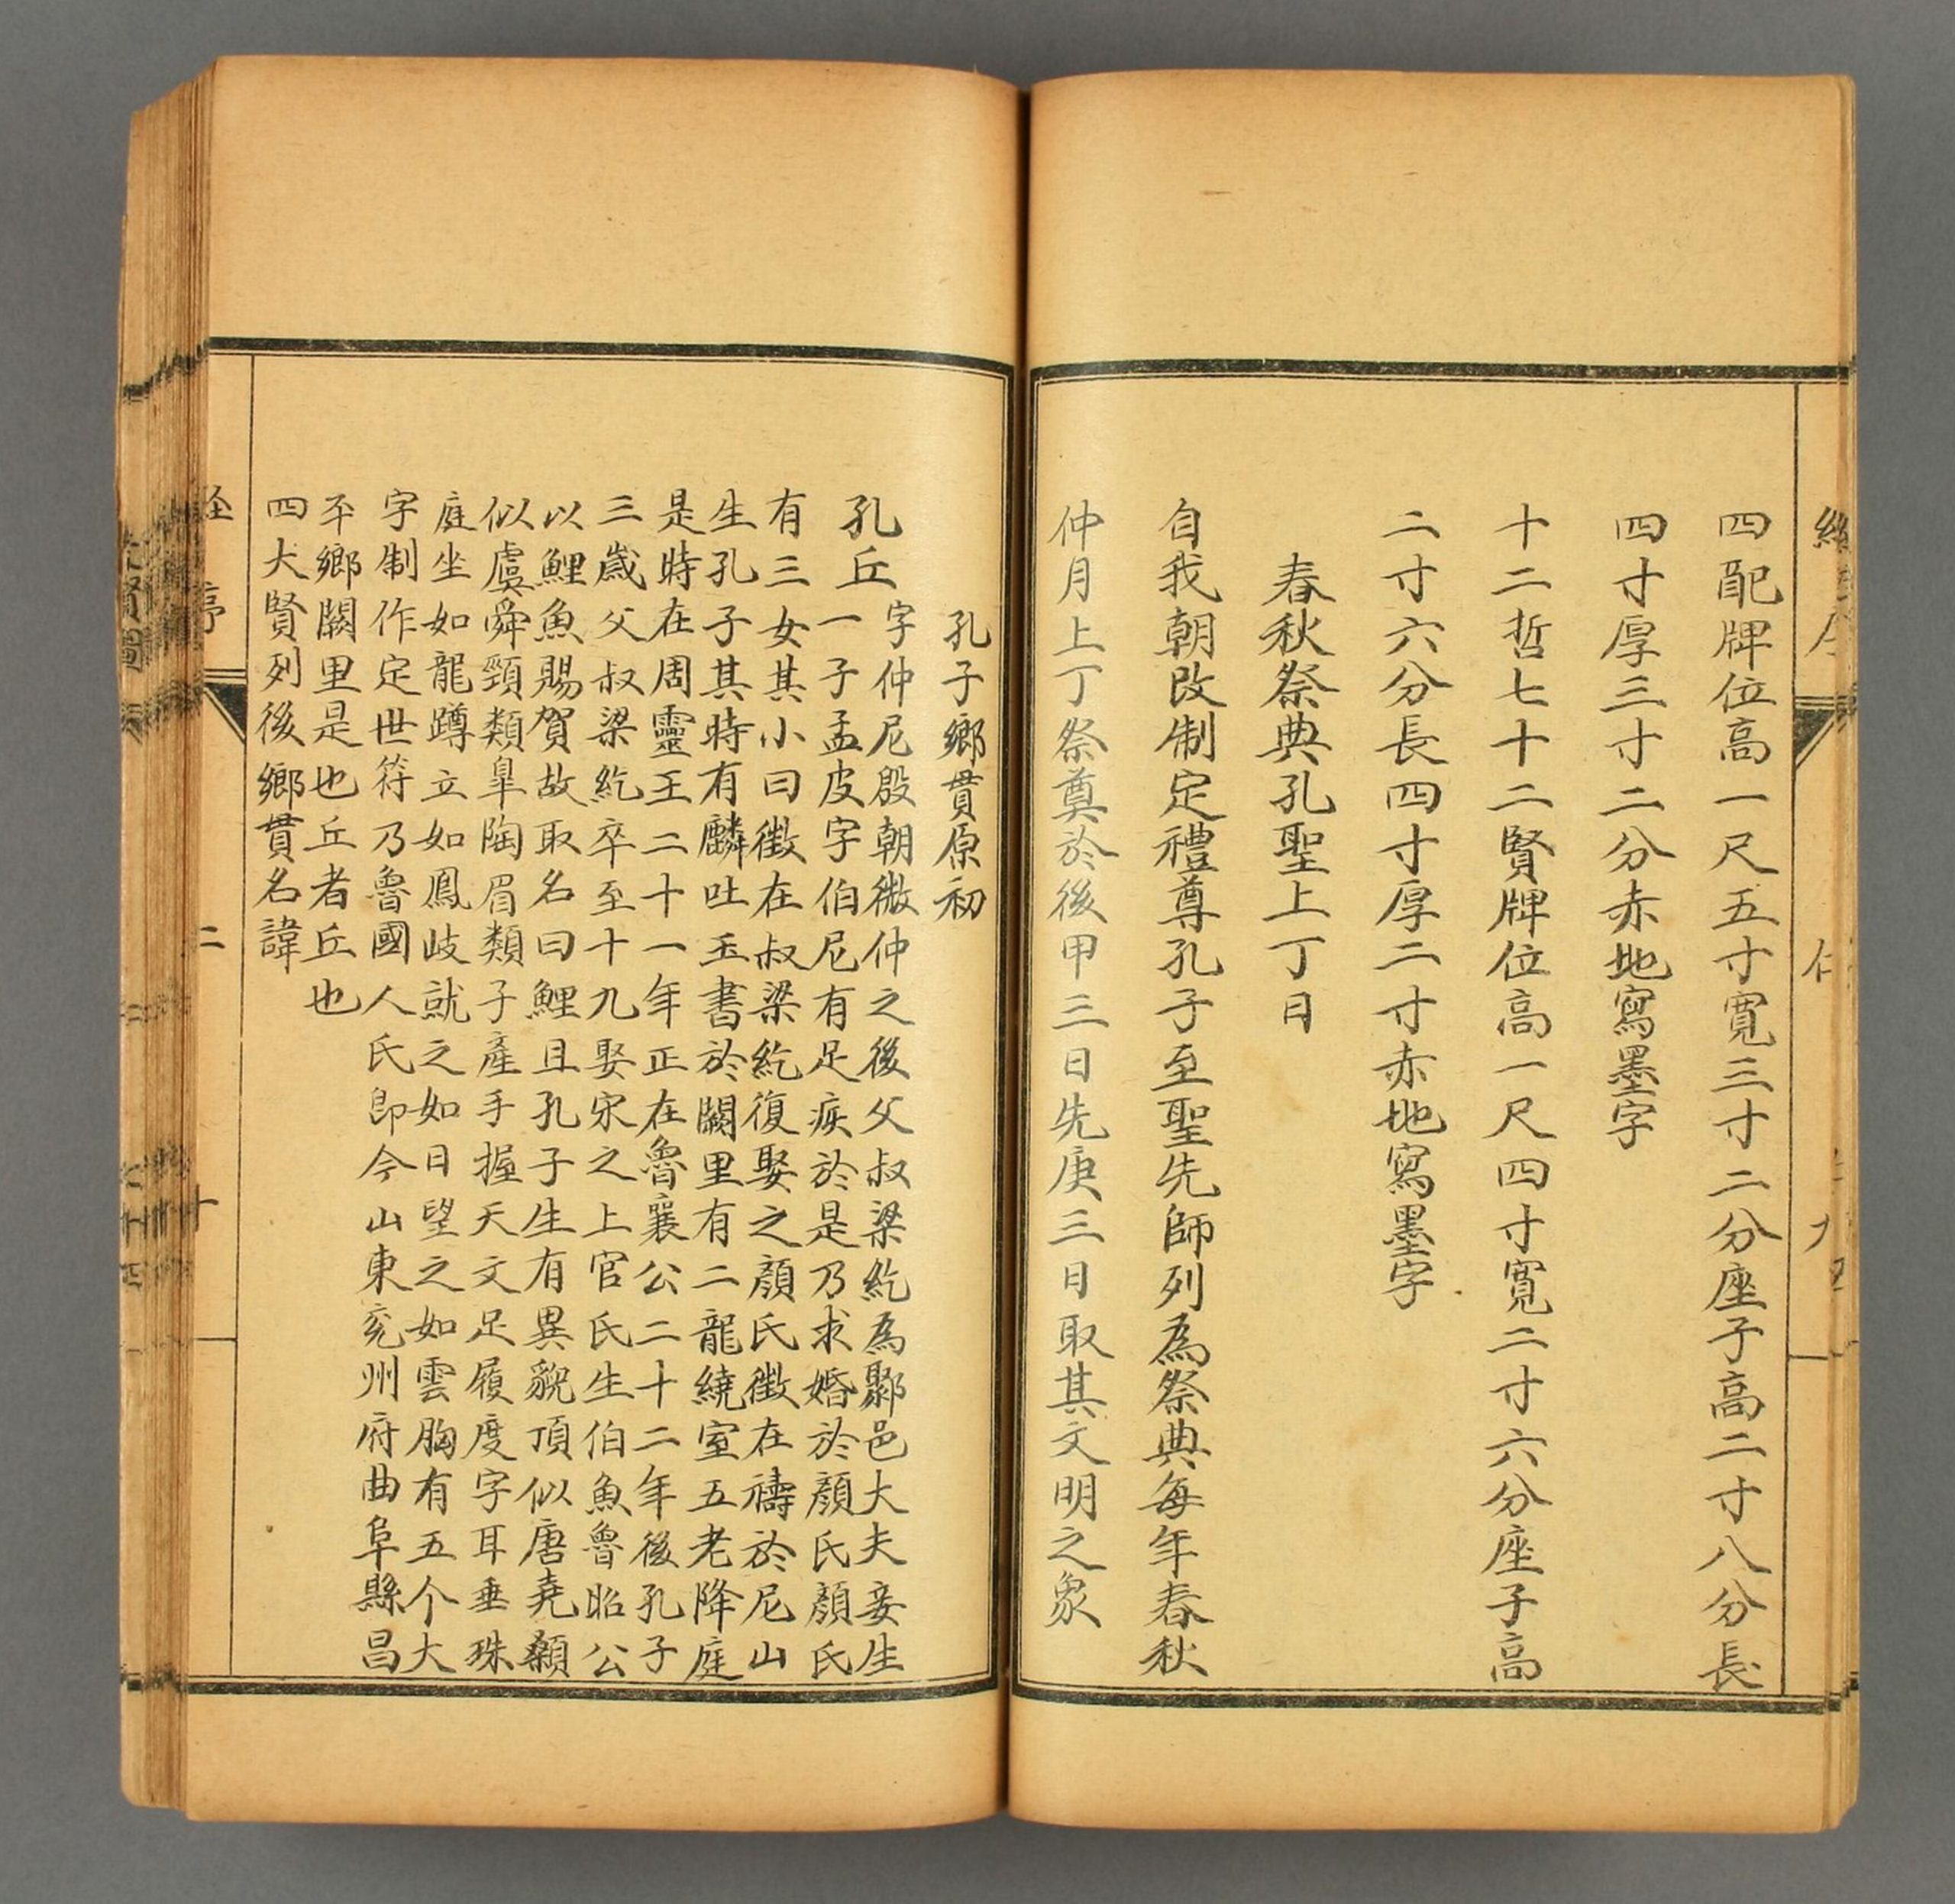 四配牌位高一尺五寸寬三寸二分座子高二寸八分長
四寸厚三寸二分赤地寫墨字
十二哲七十二賢牌位高一尺四寸寬二寸六分座子高
二寸六分長四寸厚二寸赤地寫墨字
春秋祭典孔聖上丁日
自我朝改制定禮尊孔子至聖先師列為祭典每年春秋
仲月上丁祭奠於後甲三日先庚三日取其文明之象
孔子鄉貫原初
孔丘字仲尼殷朝微仲之後父叔梁紇為鄹邑大夫妾生
一子孟皮字伯尼有足疾於是乃求婚於顏氏顏氏
有三女其小曰徵在叔梁紇復娶之顏氏徵在禱於尼山
生孔子其時有麟吐玉書於闕里有二龍繞室五老降庭
是時在周靈王二十一年正在魯襄公二十二年後孔子
三歲父叔梁紇卒至十九娶宋之上官氏生伯魚魯昭公
以鯉魚賜賀故取名曰鯉且孔子生有異貌頂似唐堯顙
似虞舜頸類皐陶眉類子產手握天文足履度字耳垂珠
庭坐如龍蹲立如鳳岐就之如日望之如雲胸有五个大
字制作定世符乃魯國人氏即今山東兗州府曲阜縣昌
平鄉闕里是也丘者丘也
四大賢列後鄉貫名諱
二